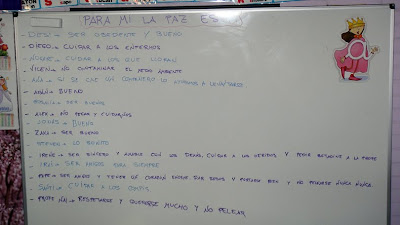 PARA MI LA PAZ ES
- DESI → SER OBEDIENTE Y BUENO
- DIEGO → CUIDAR A LOS ENFERMOS
- CUIDAR A LOS QUE LLORAN
- VICEN → NO CONTAMINAR EL MEDIO AMBIENTE
- ANA → SI SE CAE UN COMPAÑERO LO AYUDAMOS A LEVANTARSE
- BUENO
- SER BUENOS
- ALEX → NO PEGAR Y CUIDARNOS
- BUENO
- ZAKI → SER BUENO
- LO BONITO
- IRENE → SER SINCERO Y AMABLE CON LOS DEMÁS, CUIDAR A LOS HERIDOS Y PEDIR A LA GENTE
- SER AMIGOS PARA SIEMPRE
- PEPE → SER AMIGO Y TENER UN CORAZÓN GRANDE PARA TODOS Y BIEN Y NO PELEARSE NUNCA NUNCA.
- CUIDAR A LOS
- PROFE → RESPETARSE Y QUERERSE MUCHO Y NO PELEAR
a